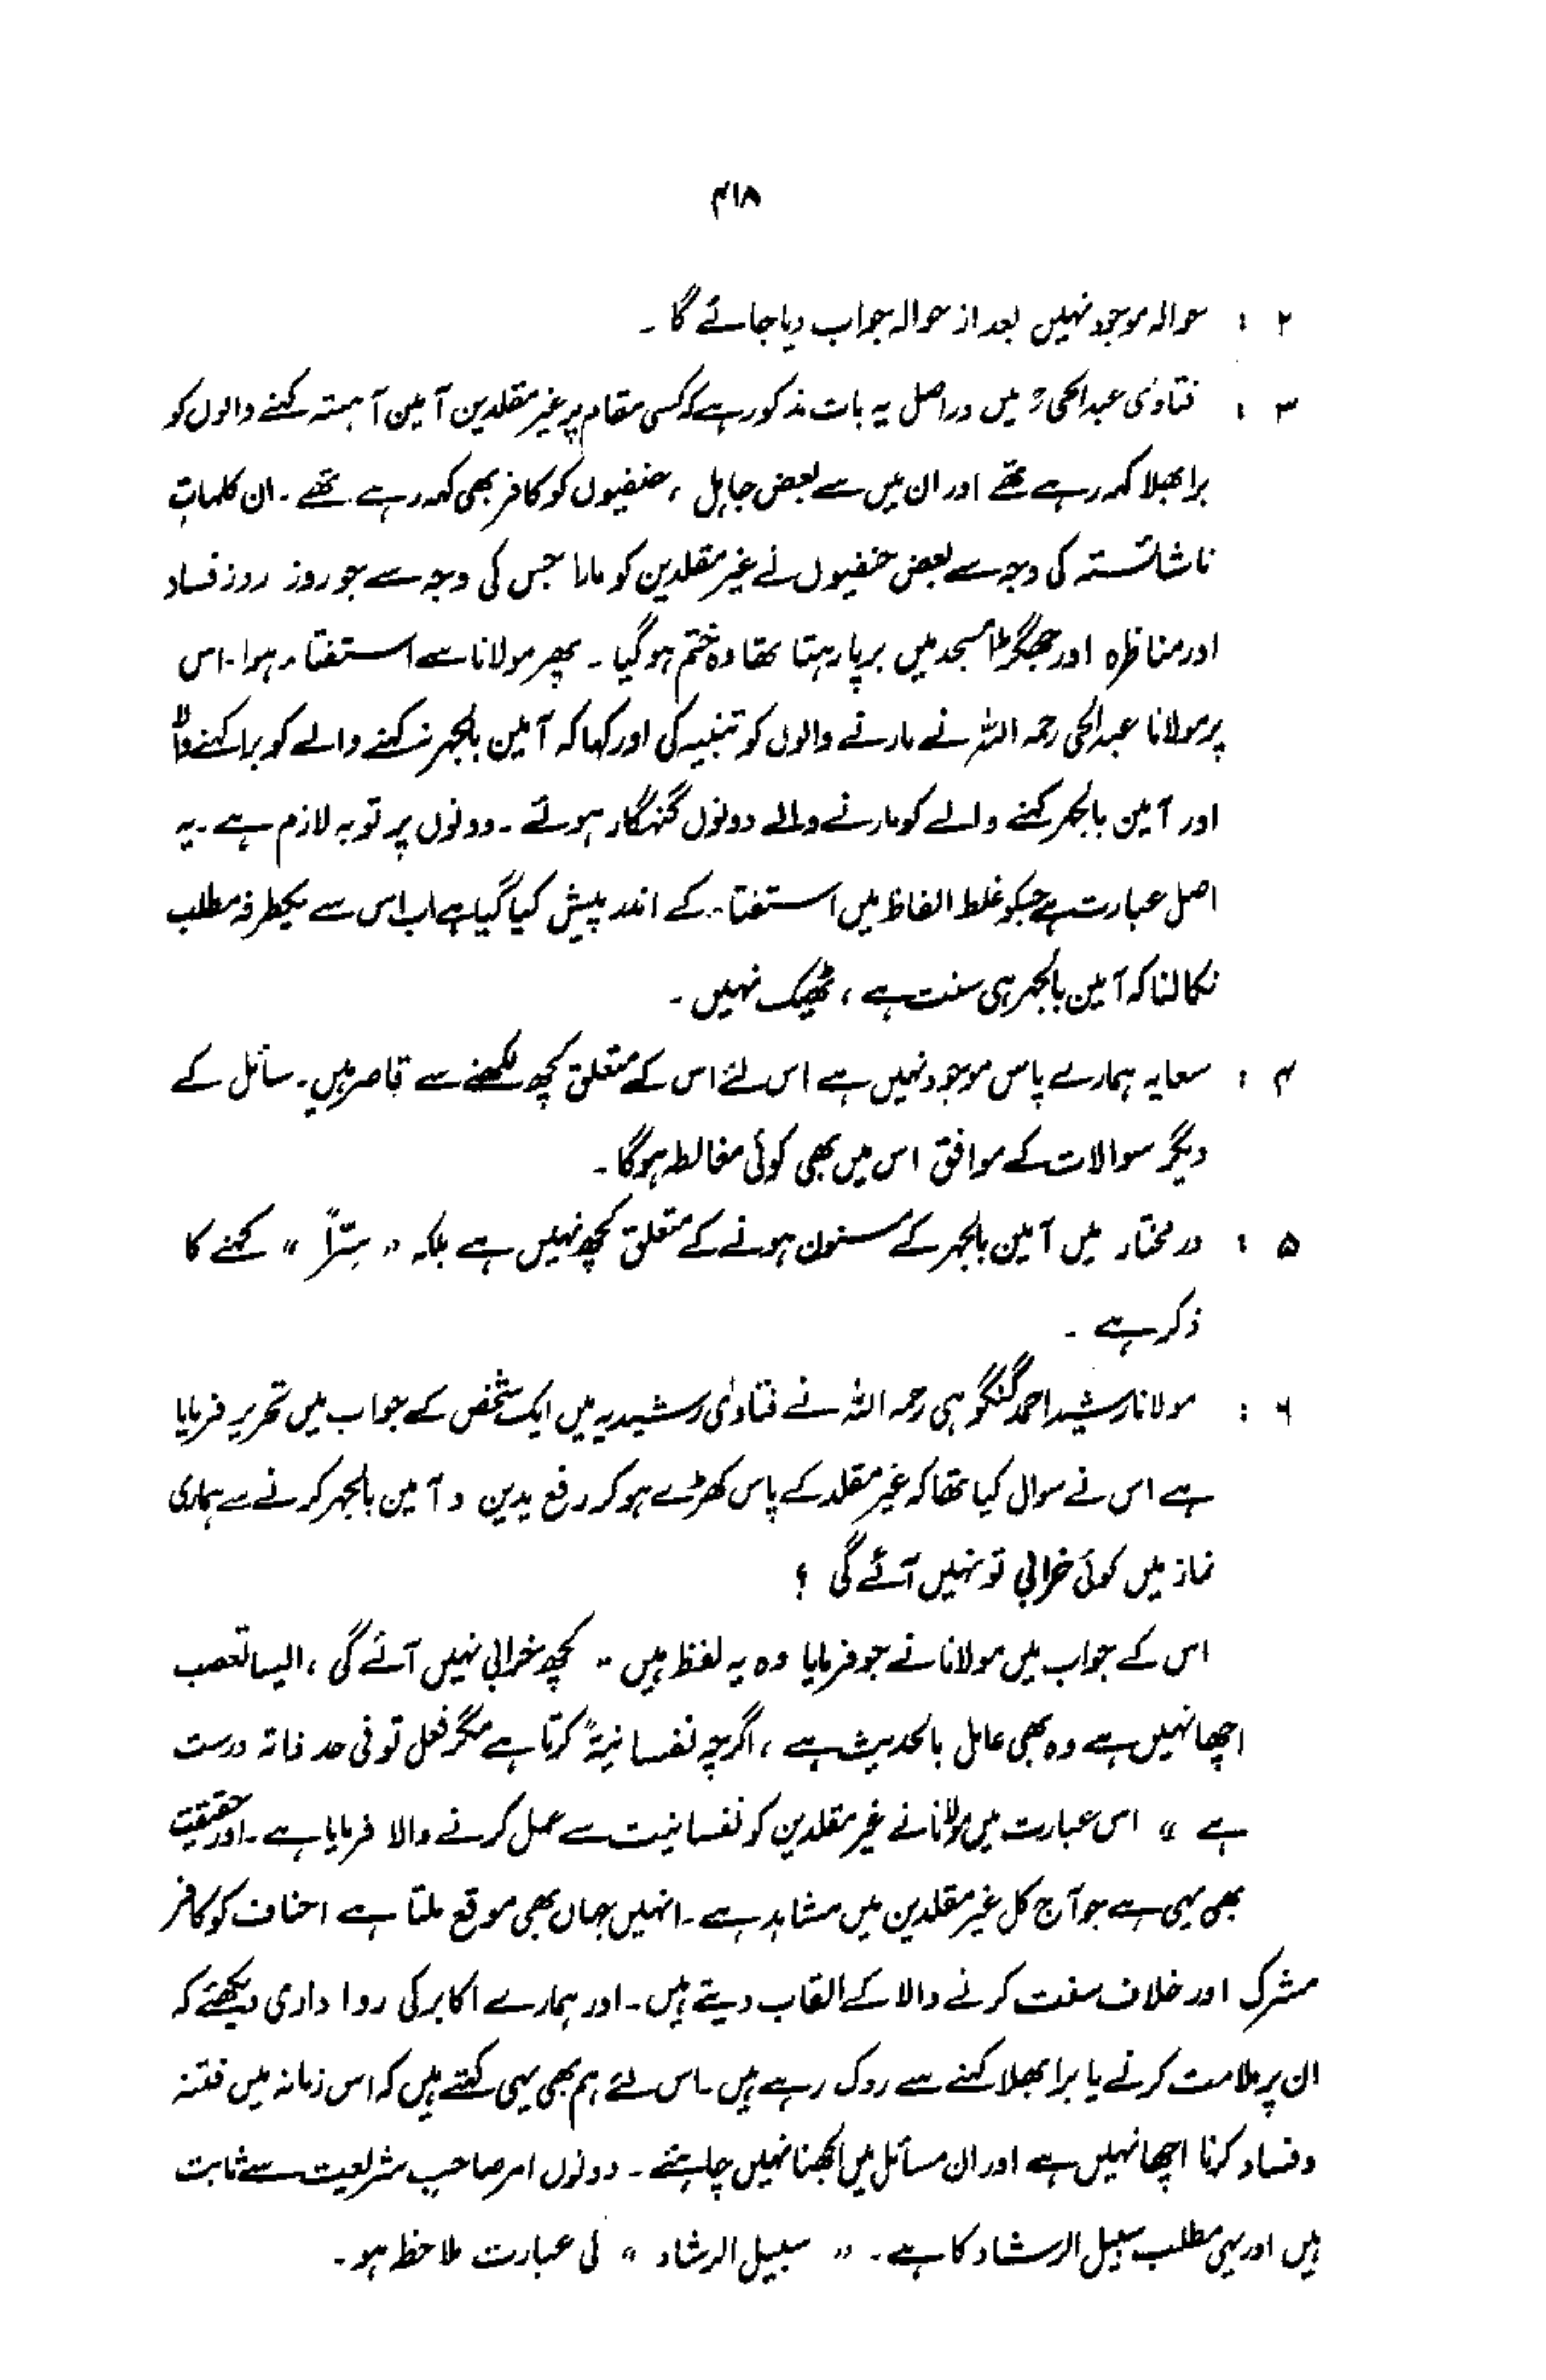 ۴۱۸
۲ : حوالہ موجود نہیں بعد از حوالہ جواب دیا جائے گا ۔
۳ : فتاوٰی عبدالحیؒ میں دراصل یہ بات مذکور ہے کہ کسی مقام پر غیر مقلدین آمین آہستہ کہنے والوں کو
برا بھلا کہہ رہے تھے اور ان میں سے بعض جاہل ، حنفیوں کو کافر بھی کہہ رہے تھے ۔ ان کلماتِ
ناشائستہ کی وجہ سے بعض حنفیوں نے غیر مقلدین کو مارا جس کی وجہ سے جو روز روز فساد
اور مناظرہ اور جھگڑا مسجد میں برپا رہتا تھا وہ ختم ہو گیا ۔ پھر مولانا سے استفتاء ہوا ۔ اس
پر مولانا عبدالحی رحمہ اللہ نے مارنے والوں کو تنبیہ کی اور کہا کہ آمین بالجہر نہ کہنے والے کو برا کہنے والا
اور آمین بالجہر کہنے والے کو مارنے والے دونوں گنہگار ہوئے ۔ دونوں پر توبہ لازم ہے ۔ یہ
اصل عبارت ہے جسکو غلط الفاظ میں استفتاء کے اندر پیش کیا گیا ہے اب اس سے یکطرفہ مطلب
نکالنا کہ آمین بالجہر ہی سنت ہے ، ٹھیک نہیں ۔
۴ : سعایہ ہمارے پاس موجود نہیں ہے اس لئے اس کے متعلق کچھ لکھنے سے قاصر ہیں ۔ سائل کے
دیگر سوالات کے موافق اس میں بھی کوئی مغالطہ ہوگا ۔
۵ : درمختار میں آمین بالجہر کے مسنون ہونے کے متعلق کچھ نہیں ہے بلکہ " سرّاً " کہنے کا
ذکر ہے ۔
۶ : مولانا رشید احمد گنگوہی رحمہ اللہ نے فتاوٰی رشیدیہ میں ایک شخص کے جواب میں تحریر فرمایا
ہے اس نے سوال کیا تھا کہ غیر مقلد کے پاس کھڑے ہو کر رفع یدین و آمین بالجہر کرنے سے ہماری
نماز میں کوئی خرابی تو نہیں آئے گی ؟
اس کے جواب میں مولانا نے جو فرمایا وہ یہ لفظ ہیں " کچھ خرابی نہیں آئے گی ، ایسا تعصب
اچھا نہیں ہے وہ بھی عامل بالحدیث ہے ، اگرچہ نفسانیۃً کرتا ہے مگر فعل تو فی حد ذاتہ درست
ہے " اس عبارت میں مولانا نے غیر مقلدین کو نفسانیت سے عمل کرنے والا فرمایا ہے ۔ اور حقیقت
بھی یہی ہے جو آج کل غیر مقلدین میں مشاہد ہے ۔ انہیں جہاں بھی موقع ملتا ہے احناف کو کافر
مشرک اور خلاف سنت کرنے والا کے القاب دیتے ہیں ۔ اور ہمارے اکابر کی روا داری دیکھئے کہ
ان پر ملامت کرنے یا برا بھلا کہنے سے روک رہے ہیں ۔ اس لئے ہم بھی یہی کہتے ہیں کہ اس زمانہ میں فتنہ
و فساد کرنا اچھا نہیں ہے اور ان مسائل میں الجھنا نہیں چاہئے ۔ دونوں امر صاحبِ شریعت سے ثابت
ہیں اور یہی مطلب سبیل الرشاد کا ہے ۔ " سبیل الرشاد " کی عبارت ملاحظہ ہو ۔